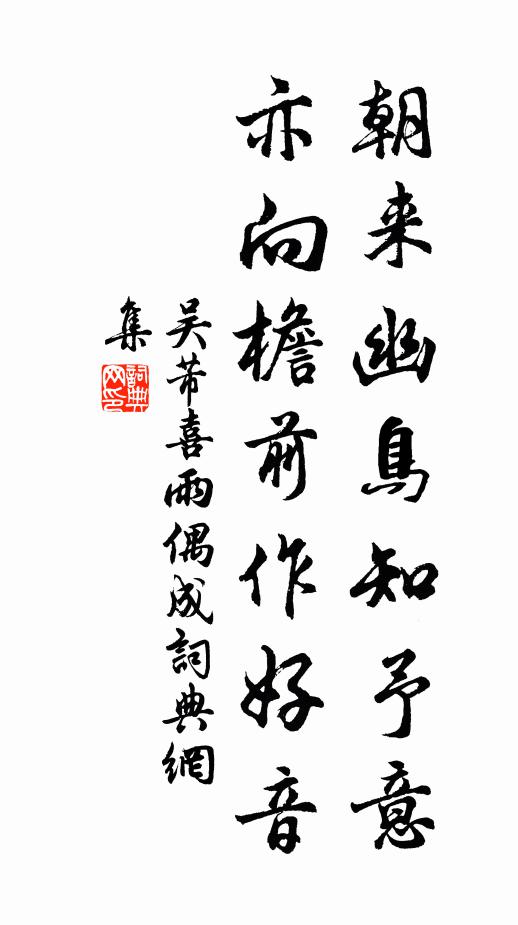 朝来幽鳥知予意
亦向檐前作好音
吴芾喜雨偶成詞典網
集
詞典
网印